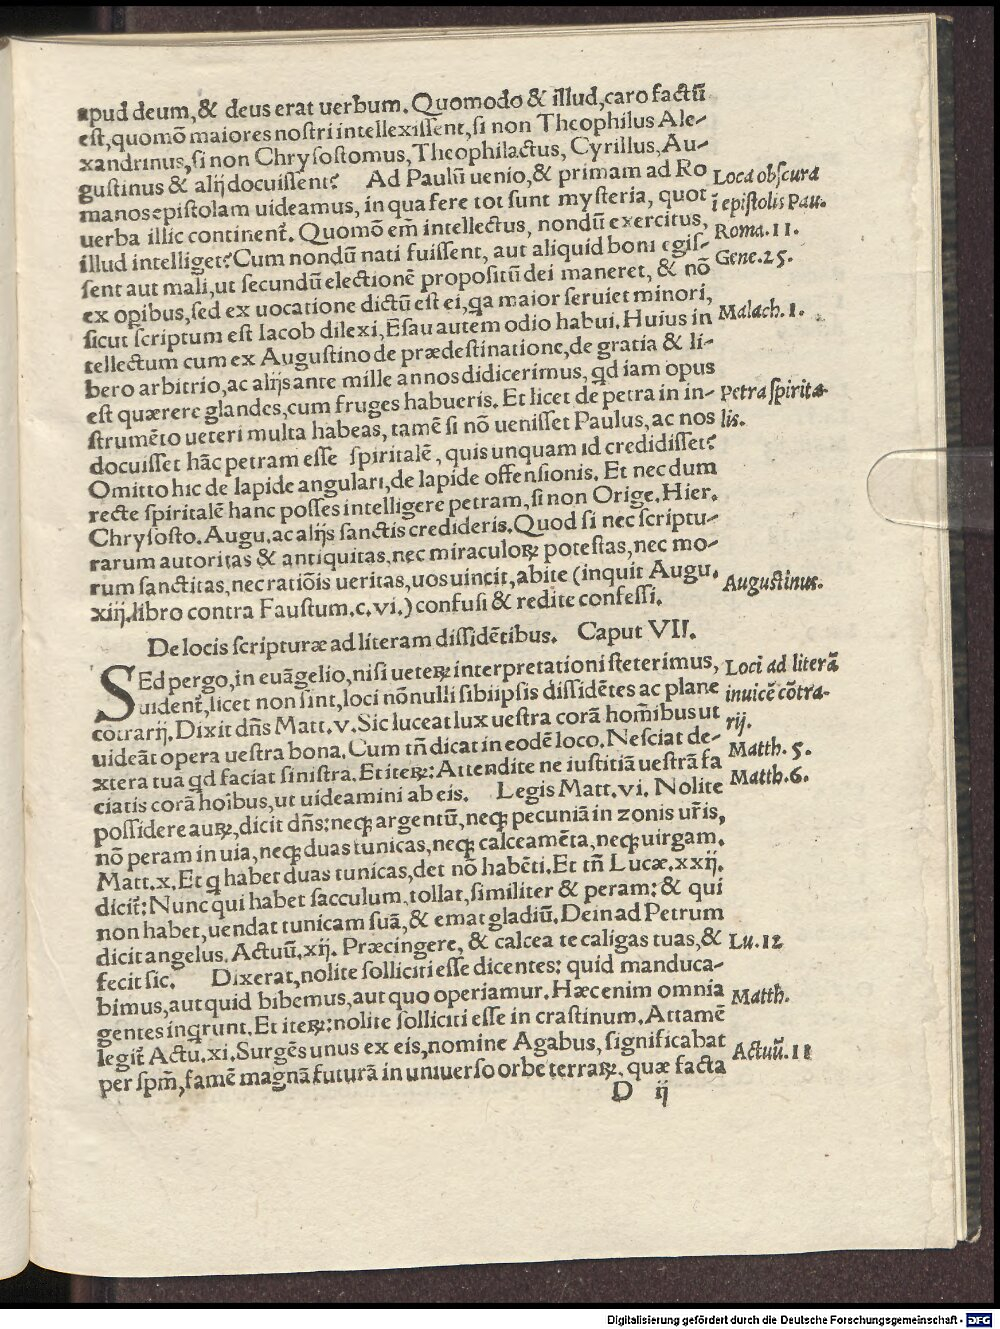 apud deum,& deus erat uerbum.Quomodo & illud,caro factũ
est,quomõ maiores nostri intellexissent,si non Theophilus Ale-
xandrinus,si non Chrysostomus,Theophilactus, Cyrillus,Au-
gustinus & alij docuissent? Ad Paulũ uenio,& primam ad Ro
manos epistolam uideamus, in qua fere tot sunt mysteria, quot
uerba illic continent̃. Quomõ em̃ intellectus, nondũ exercitus,
illud intelliget?Cum nondũ nati fuissent, aut aliquid boni egis-
sent aut mali,ut secundũ electionẽ propositũ dei maneret, & nõ
ex oꝑibus,sed ex uocatione dictũ est ei,qa maior seruiet minori,
sicut scriptum est Iacob dilexi,Esau autem odio habui.Huius in
tellectum cum ex Augustino de prædestinatione,de gratia & li-
bero arbitrio,ac alijs ante mille annos didicerimus, qd iam opus
est quærere glandes,cum fruges habueris. Et licet de petra in in-
strumẽto ueteri multa habeas, tamẽ si nõ uenisset Paulus, ac nos
docuisset hãc petram esse spiritalẽ, quis unquam id credidisset?
Omitto hic de lapide angulari,de lapide offensionis. Et nec dum
recte spiritalẽ hanc posses intelligere petram,si non Orige.Hier.
Chrysosto.Augu.ac alijs sanctis credideris.Quod si nec scriptu-
rarum autoritas & antiquitas,nec miraculoꝝ potestas,nec mo-
rum sanctitas,nec ratiõis ueritas,uos uincit,abite (inquit Augu.
xiij.libro contra Faustum.c.vi.) confusi & redite confessi.
De locis scripturæ ad literam dissidẽtibus. Caput VII.
SEd pergo,in euãgelio,nisi ueteꝝ interpretationi steterimus,
uident̃,licet non sint,loci nõnulli sibiipsis dissidẽtes ac plane
cõtrarij.Dixit dñs Matt.v.Sic luceat lux uestra corã hom̃ibus ut
uideãt opera uestra bona.Cum tñ dicat in eodẽ loco.Nesciat de-
xtera tua qd faciat sinistra.Et iteꝝ:Attendite ne iustitiã uestrã fa
ciatis corã hoĩbus,ut uideamini ab eis. Legis Matt.vi. Nolite
possidere auꝝ,dicit dñs:neqꝫ argentũ,neqꝫ pecuniã in zonis ur̃is,
nõ peram in uia,neqꝫ duas tunicas,neqꝫ calceamẽta,neqꝫ uirgam.
Matt.x.Et q habet duas tunicas,det nõ habẽti.Et tñ Lucæ.xxij.
dicit̃:Nunc qui habet sacculum,tollat,similiter & peram:& qui
non habet,uendat tunicam suã,& emat gladiũ.Dein ad Petrum
dicit angelus.Actuũ.xij. Præcingere, & calcea te caligas tuas,&
fecit sic. Dixerat,nolite solliciti esse dicentes: quid manduca-
bimus,aut quid bibemus,aut quo operiamur.Hæc enim omnia
gentes inqrunt.Et iteꝝ:nolite solliciti esse in crastinum.Attamẽ
legit̃ Actu.xi.Surgẽs unus ex eis,nomine Agabus, significabat
per sp̃m,famẽ magnã futurã in uniuerso orbe terraꝝ, quæ facta
D ij
Loca obscura
ĩ epistolis Pau.
Roma.11.
Gene.25.
Malach.1.
Petra spirita-
lis.
Augustinus.
Loci ad literã
inuicẽ cõtra-
rij.
Matth.5.
Matth.6.
Lu.12
Matth.
Actuũ.11
Digitalisierung gefördert durch die Deutsche Forschungsgemeinschaft - DFG